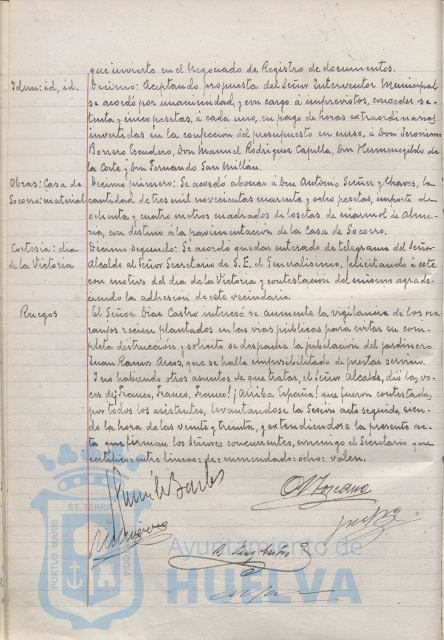 que invierta en el Negociado de Registro de documentos.
Idem: id, id. Décimo: Aceptando propuesta del Señor Interventor Municipal
se acordó por unanimidad, y con cargo á imprevistos, conceder se-
tenta y cinco pesetas, á cada uno, en pago de horas extraordinarias
invertidas en la confección del presupuesto en curso, á Don Jeronimo
Borrero Escudero, Don Manuel Rodriguez Capilla, Don Hermenegildo de
la Corte y Don Fernando San Millan.
Obras: Casa de Décimo primero: Se acordó abonar á Don Antonio Señer y Chaves, la
Socorro: material cantidad de tres mil novecientas cuarenta y ocho pesetas, importe de
ochenta y cuatro metros cuadrados de losetas de marmol de Alme-
ria, con destino á la pavimentación de la Casa de Socorro.
Cortesía: dia Décimo segundo: Se acordó quedar enterado de telegrama del Señor
de la Victoria Alcalde al Señor Secretario de S. E. el Generalísimo, felicitando á este
con motivo del dia de la Victoria y contestación del mismo agrade-
ciendo la adhesión de este vecindario.
Ruegos El Señor Diaz Castro interesó se aumente la vigilancia de los na-
ranjos recien plantados en las vias públicas para evitar su com-
pleta destrucción y solicitó se despache la jubilación del jardinero
Juan Ramos Arcos, que se halla imposibilitado de prestar servicio.
Y no habiendo otros asuntos de que tratar, el Señor Alcalde, dió las vo-
ces de ¡Franco, Franco, Franco! ¡Arriba España! que fueron contestadas
por todos los asistentes, levantandose la Sesión acto seguido, sien-
do la hora de las veinte y treinta, y extendiendose la presente ac-
ta que firman los Señores concurrentes, conmigo el Secretario que
certifico= entre lineas= de= enmendado= ocho= valen.
PORTUS MARIS
ET TERRAE
Ayuntamiento de
HUELVA